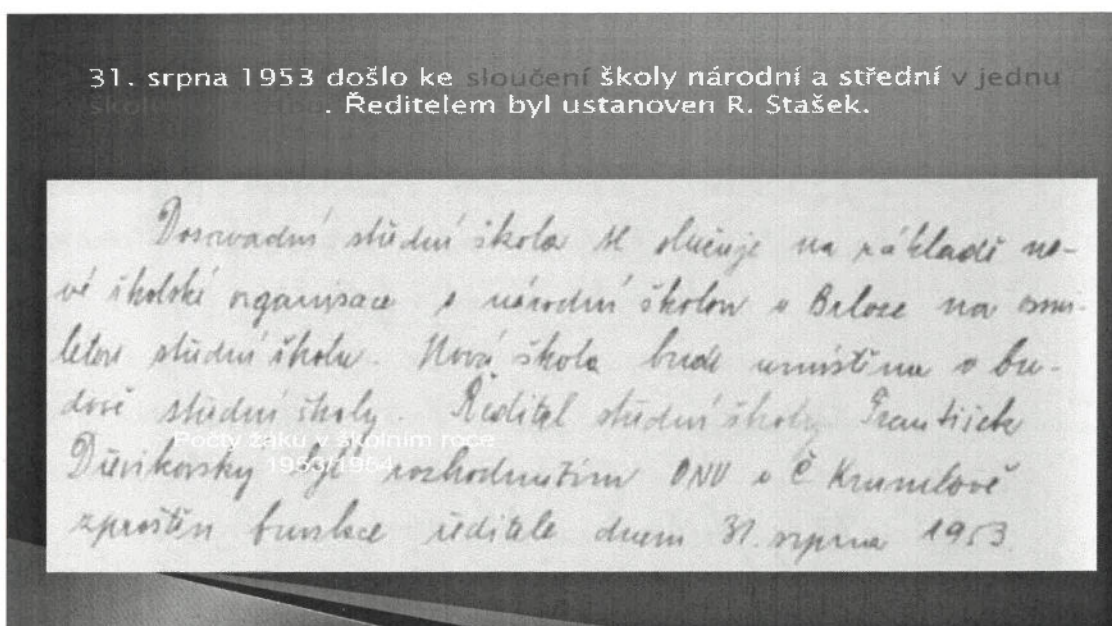 31. srpna 1953 došlo ke sloučení školy národní a střední v jednu
školu
. Ředitelem byl ustanoven R. Stašek.
Dosavadní střední škola se slučuje na základě no-
vé školské organisace s národní školou v Brloze na osmi-
letou střední školu. Nová škola bude umístěna v bu-
dově střední školy. Ředitel střední školy František
Počty žáku v školním roce
1953/1954
byl rozhodnutím ONV v Č Krumlově
zproštěn funkce ředitele dnem 31. srpna 1953.